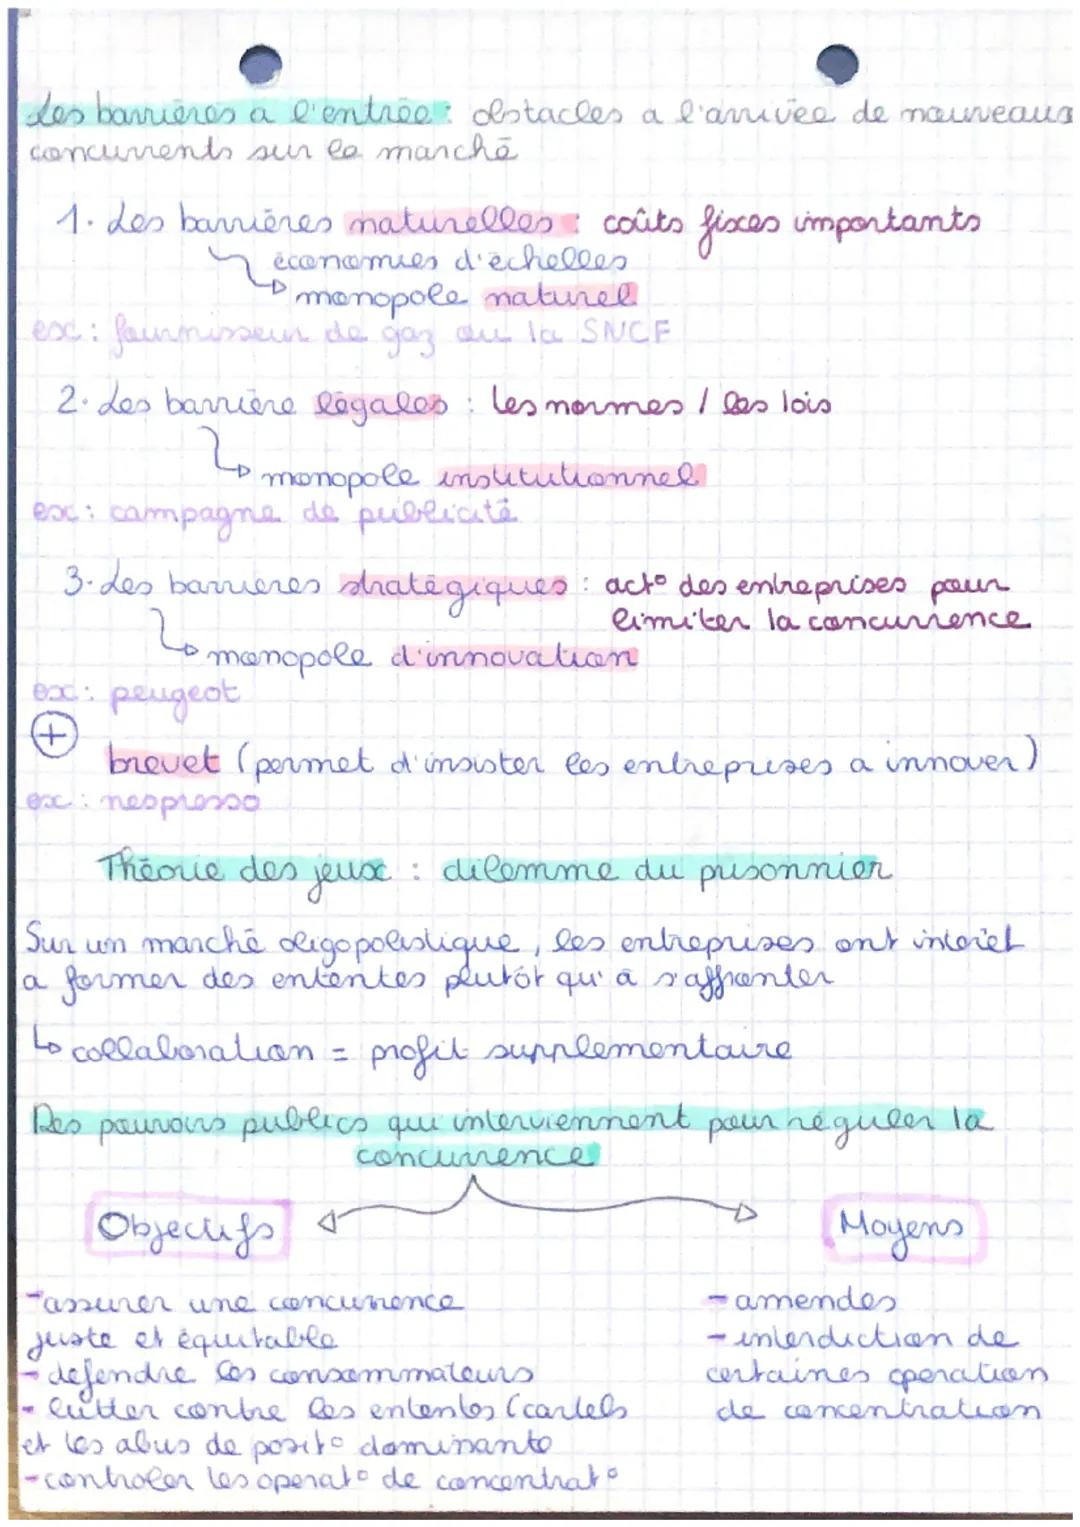 Les barrières a l'entrée : obstacles a l'arrivée de nouveaux
concurrents sur le marché
1. Les barrières naturelles : coûts fixes importants
économies d'échelles
monopole naturel
ex : fournisseur de gaz ou la SNCF
2. Les barrière légales : les normes / les lois
monopole institutionnel
ex : campagne de publicité
3. Les barrieres stratégiques : act° des entreprises pour
limiter la concurrence
monopole d'innovation
ex : peugeot
+
brevet (permet d'insister les entreprises a innover)
ex : nespresso
Théorie des jeux : dilemme du prisonnier
Sur un marché oligopolistique, les entreprises ont intérêt
a former des ententes plutôt qu'à s'affronter
↳ collaboration = profit supplementaire
Des pouvoirs publics qui interviennent pour réguler la
concurrence
Objectifs Moyens
- assurer une concurrence
juste et équitable
- defendre les consommateurs
- lutter contre les ententes (cartels
et les abus de posit° dominante
- controler les operat° de concentrat°
- amendes
- interdiction de
certaines operation
de concentration